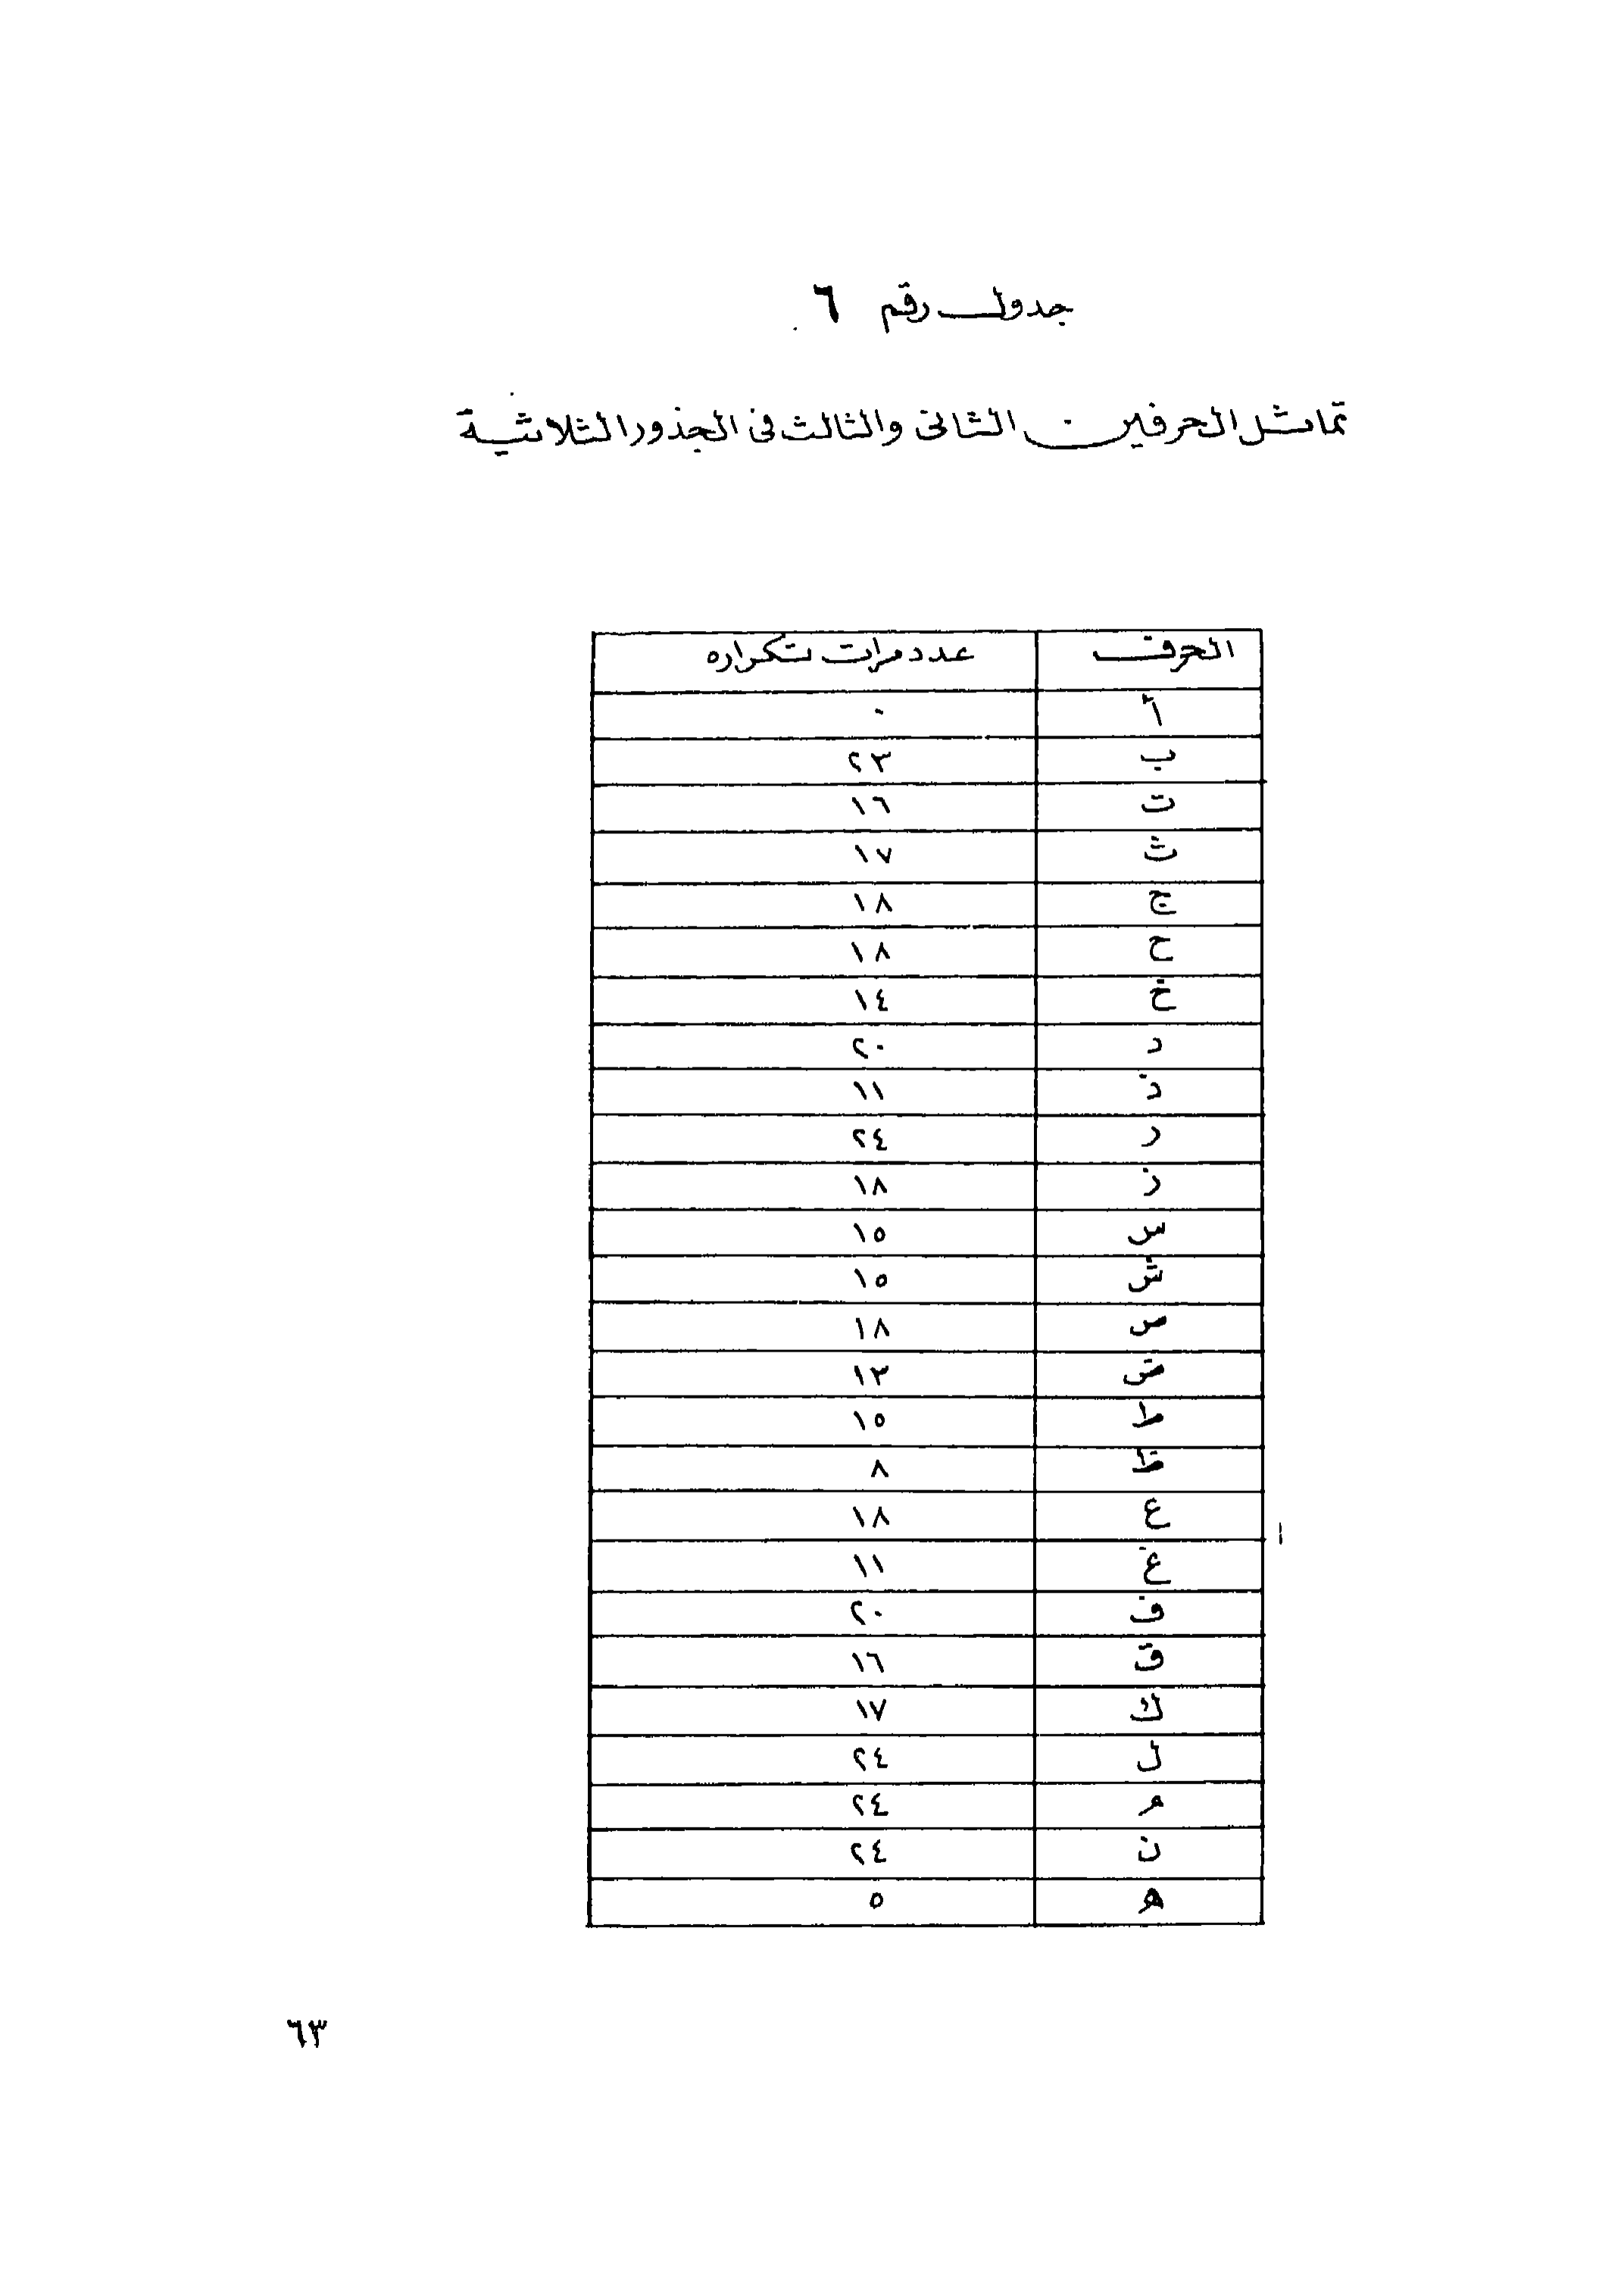 جدول رقم ٦
تماثل الحرفين الثانى والثالث فى الجذور الثلاثية
الحرف عدد مرات تكراره
أ ٠
ب ٢٣
ت ١٦
ث ١٧
ج ١٨
ح ١٨
خ ١٤
د ٢٠
ذ ١١
ر ٢٤
ز ١٨
س ١٥
ش ١٥
ص ١٨
ض ١٣
ط ١٥
ظ ٨
ع ١٨
غ ١١
ف ٢٠
ق ١٦
ك ١٧
ل ٢٤
م ٢٤
ن ٢٤
ه ٥
٦٣